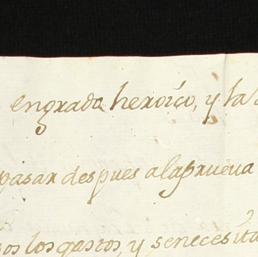 en grado heroico, y la
pasar despues a la prueva
los gastos, y se necesita